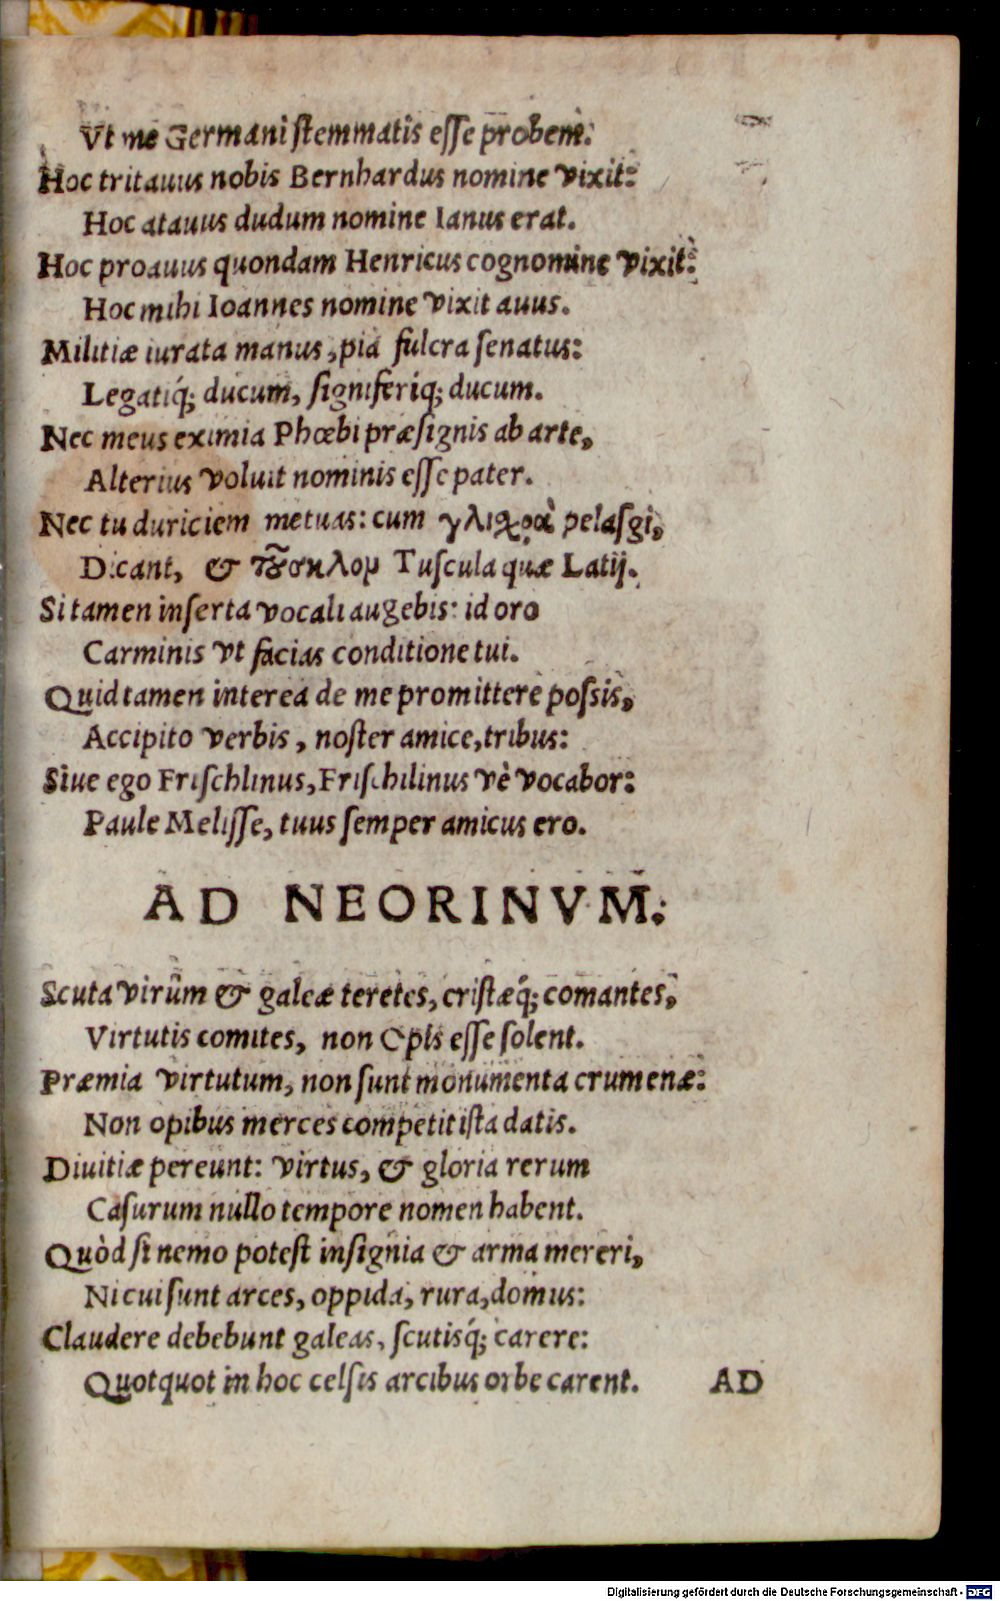 Vt me Germani ſtemmatis eſſe probem:
Hoc tritauus nobis Bernhardus nomine vixit:
Hoc atauus dudum nomine Ianus erat.
Hoc proauus quondam Henricus cognomine vixit:
Hoc mihi Ioannes nomine vixit auus.
Militiæ iurata manus, pia fulcra ſenatus:
Legatiq́; ducum, ſigniferiq́; ducum.
Nec meus eximia Phœbi præſignis ab arte,
Alterius voluit nominis eſſe pater.
Nec tu duriciem metuas: cum γλιχρὰ pelaſgi,
Dicant, & τȣ͂σκλομ Tuſcula quæ Latij.
Si tamen inſerta vocali augebis: id oro
Carminis vt facias conditione tui.
Quid tamen interea de me promittere poſsis,
Accipito verbis, noſter amice, tribus:
Siue ego Friſchlinus, Friſchilinus vè vocabor:
Paule Meliſſe, tuus ſemper amicus ero.
AD NEORINVM.
Scuta virûm & galeæ teretes, criſtæq́; comantes,
Virtutis comites, non Opis eſſe ſolent.
Præmia virtutum, non ſunt monumenta crumenæ:
Non opibus merces competit iſta datis.
Diuitiæ pereunt: virtus, & gloria rerum
Caſurum nullo tempore nomen habent.
Quòd ſi nemo poteſt inſignia & arma mereri,
Ni cui ſunt arces, oppida, rura, domus:
Claudere debebunt galeas, ſcutisq́; carere:
Quotquot in hoc celſis arcibus orbe carent.
AD
Digitalisierung gefördert durch die Deutsche Forschungsgemeinschaft - DFG